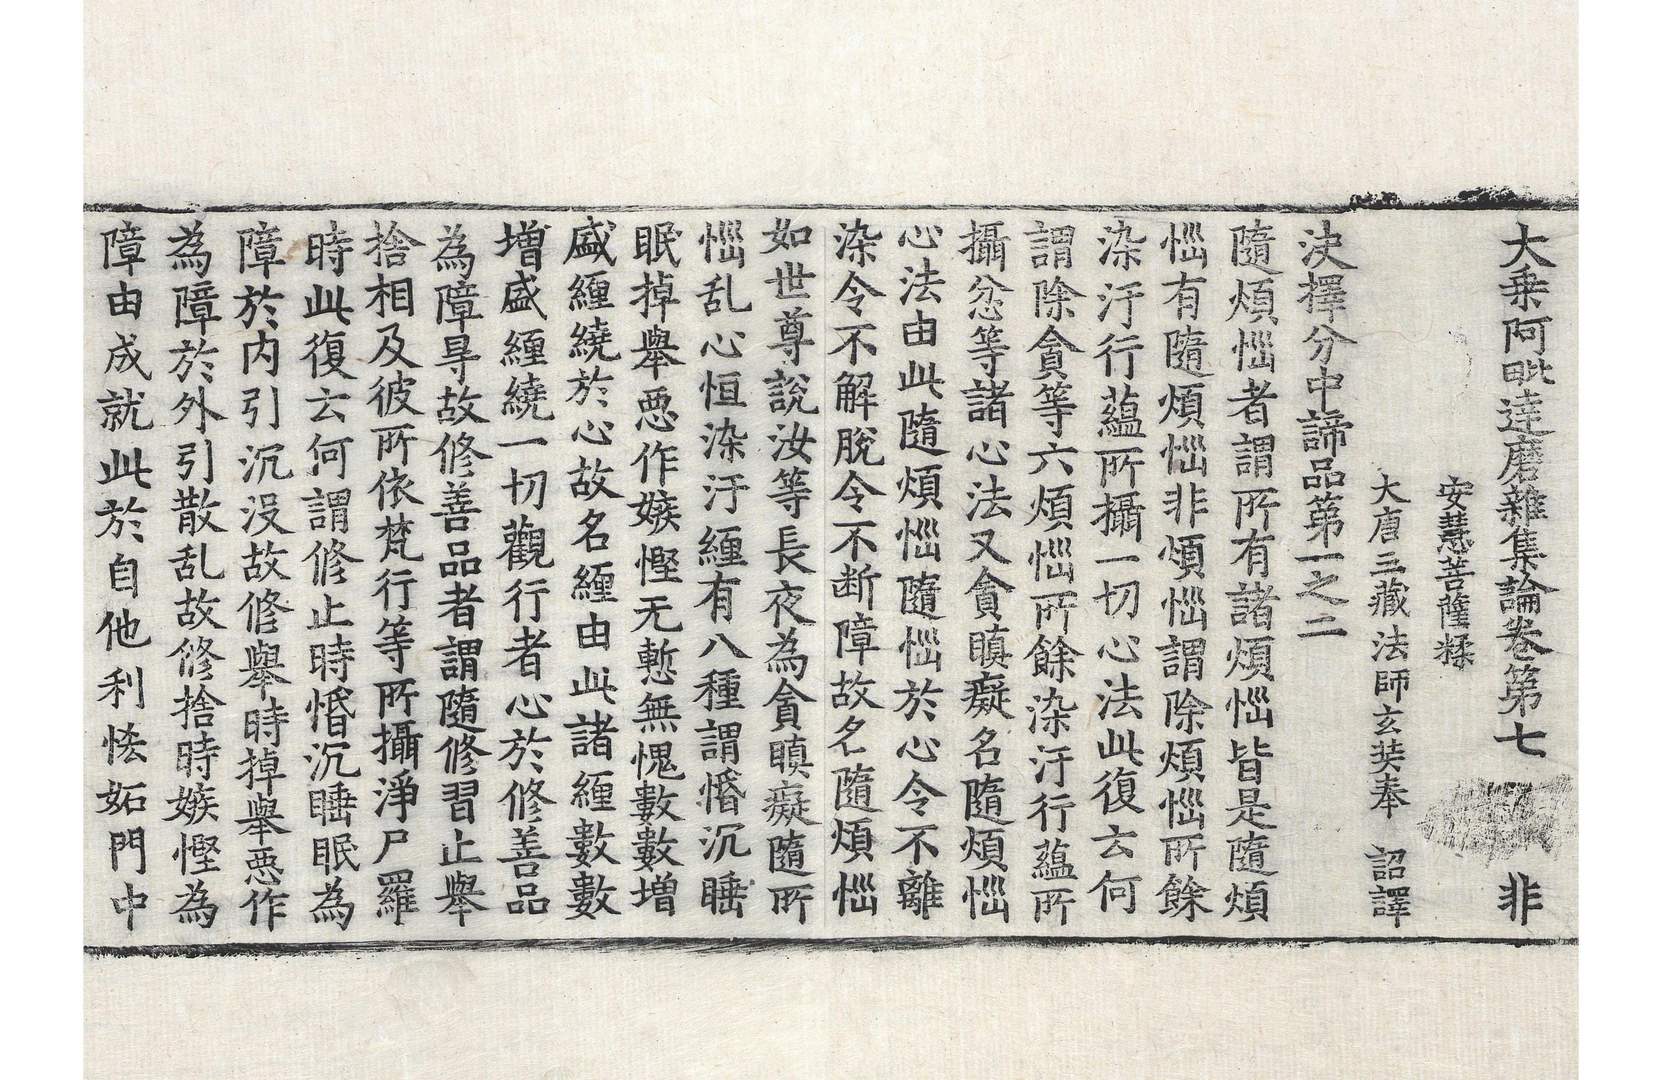 大乗阿毗達磨雜集論卷第七 非
安慧菩薩糅
大唐三藏法師玄奘奉 詔譯
決擇分中諦品第一之二
隨煩惱者謂所有諸煩惱皆是隨煩
惱有隨煩惱非煩惱謂除煩惱所餘
染汙行蘊所攝一切心法此復云何
謂除貪等六煩惱所餘染汙行蘊所
攝忿等諸心法又貪瞋癡名隨煩惱
心法由此隨煩惱隨惱於心令不離
染令不解脫令不断障故名隨煩惱
如世尊說汝等長夜為貪瞋癡隨所
惱乱心恒染汙纏有八種謂惛沉睡
眠掉舉悪作嫉慳无慙無愧數數增
盛纏繞於心故名纏由此諸纏數數
增盛纏繞一切觀行者心於修善品
為障㝵故修善品者謂隨修習止舉
捨相及彼所依梵行等所攝淨尸羅
時此復云何謂修止時惛沉睡眠為
障於内引沉没故修舉時掉舉悪作
為障於外引散乱故修捨時嫉慳為
障由成就此於自他利悋妬門中